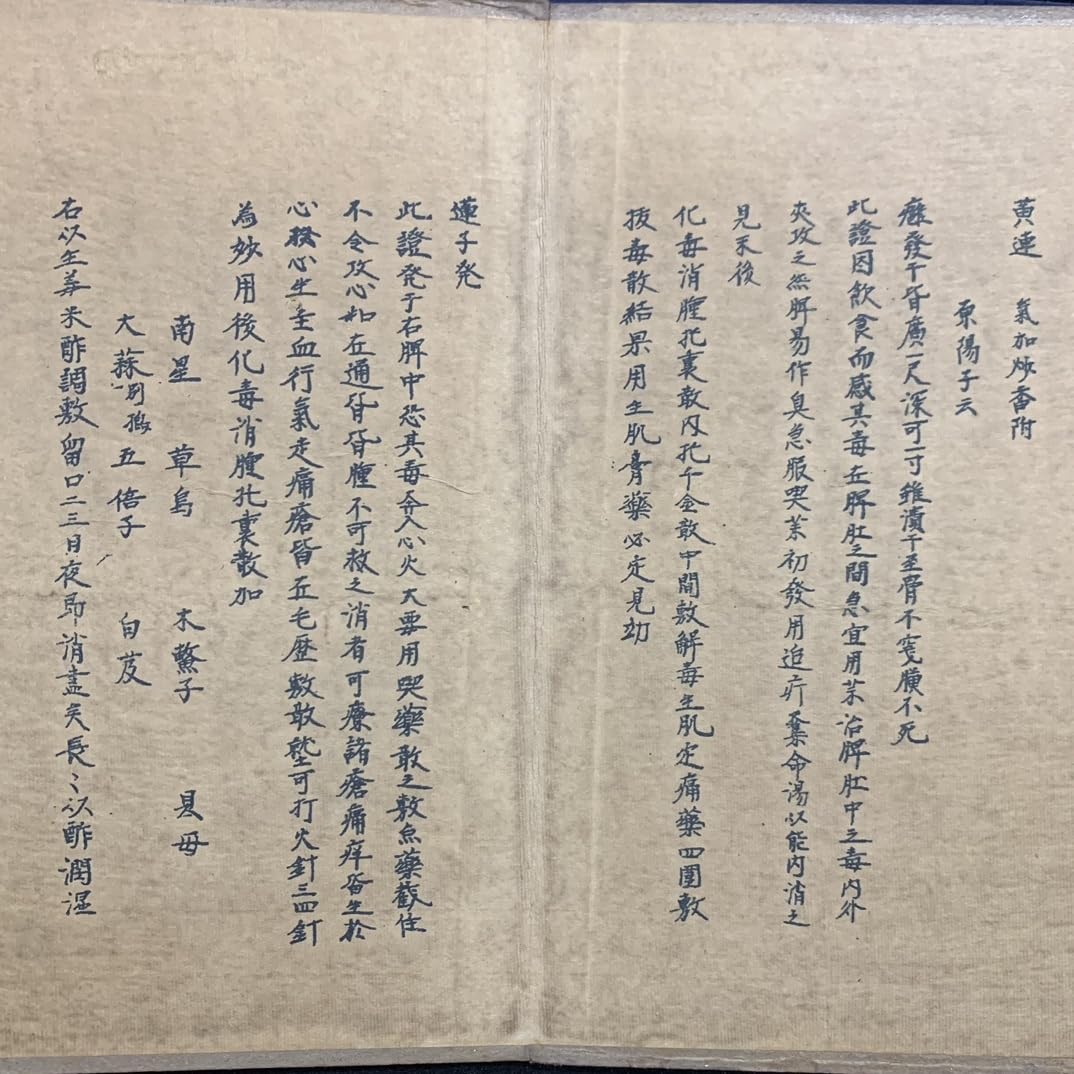 黃連　氣加炒香附
東陽子云
癰發于背廣一尺深可一寸雖潰干至骨不穿膜不死
此證因飲食而感其毒在脾肚之間急宜用茶治脾肚中之毒內外
夾攻之然脾易作臭急服喫茶初發用追疔奪命湯以能內消之
見末後
化毒消腫托裏散內托千金散中間敷解毒生肌定痛藥四圍敷
拔毒散結果用生肌膏藥必定見効
蓮子発
此證発于右脾中恐其毒奔入心火大要用哭藥散之敷魚藥截住
不令攻心如在通背背腫不可救之消者可療諸瘡痛痒皆生於
心發心生主血行氣走痛瘡皆在毛歷敷散 可打火針三四針
為妙用後化毒消腫托裏散加
南星　草烏　木鱉子　貝母
大蒜　五倍子　白芨
右以生姜米醋調敷留口二三日夜即消盡矣長〻以醋潤湿